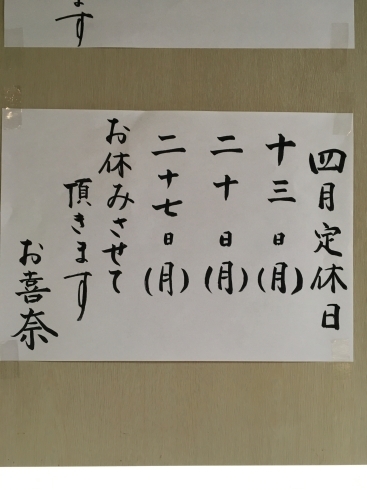 ます
四月定休日
十三日(月)
二十日(月)
二十七日(月)
お休みさせて
頂きます
お喜奈